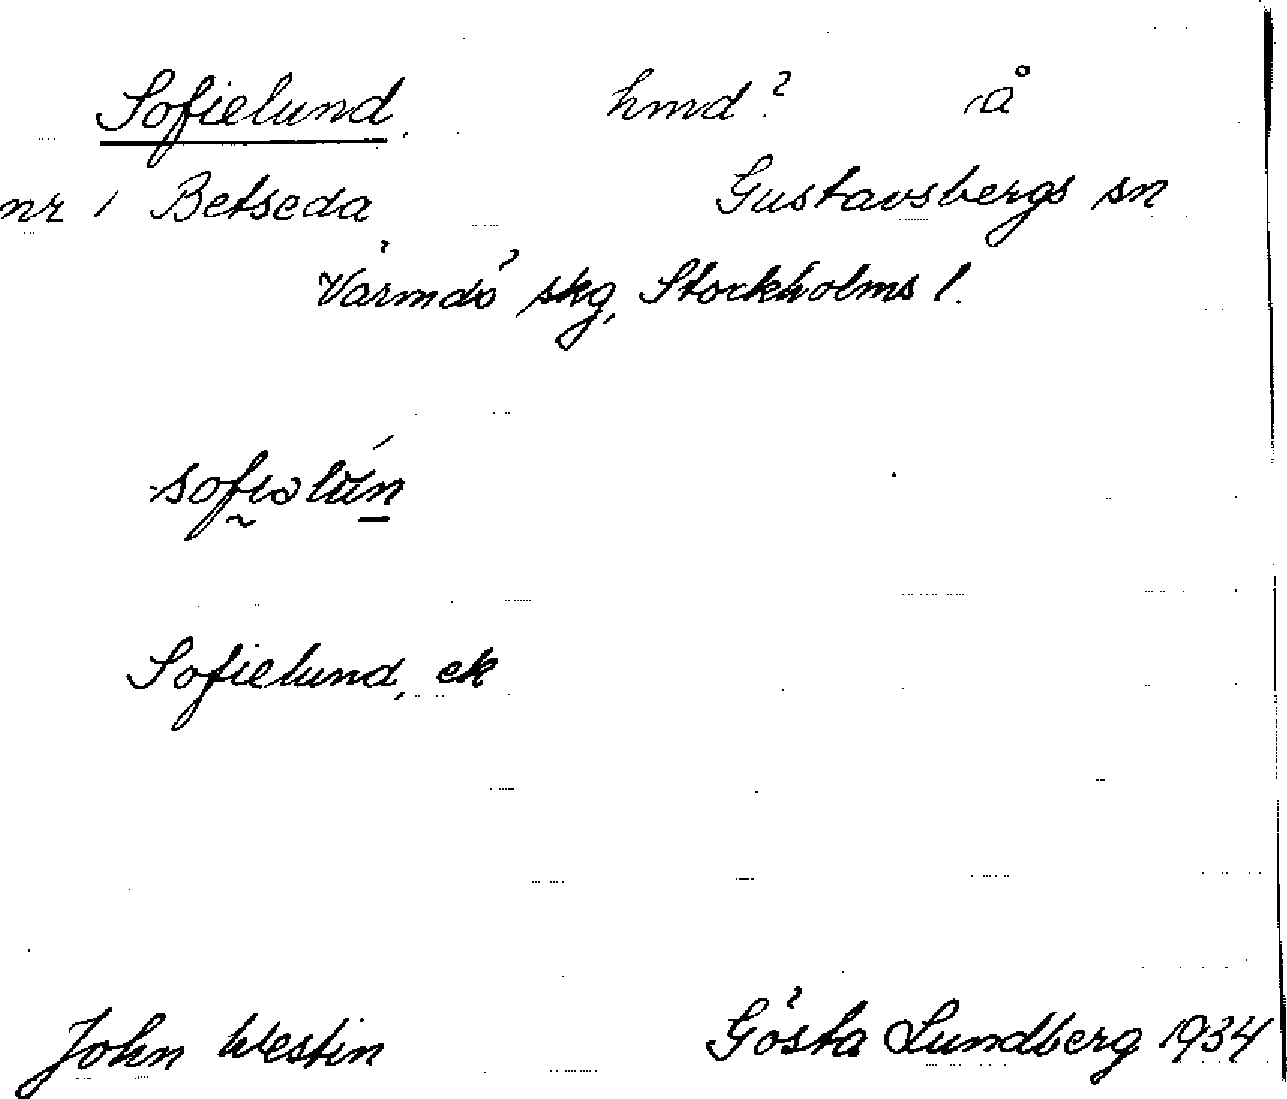 Sofielund hmd? å
nr 1 Betseda Gustavsbergs sn
Värmdö skg, Stockholms l.
sofiəlún
Sofielund, ek
John Westin Gösta Lundberg 1934